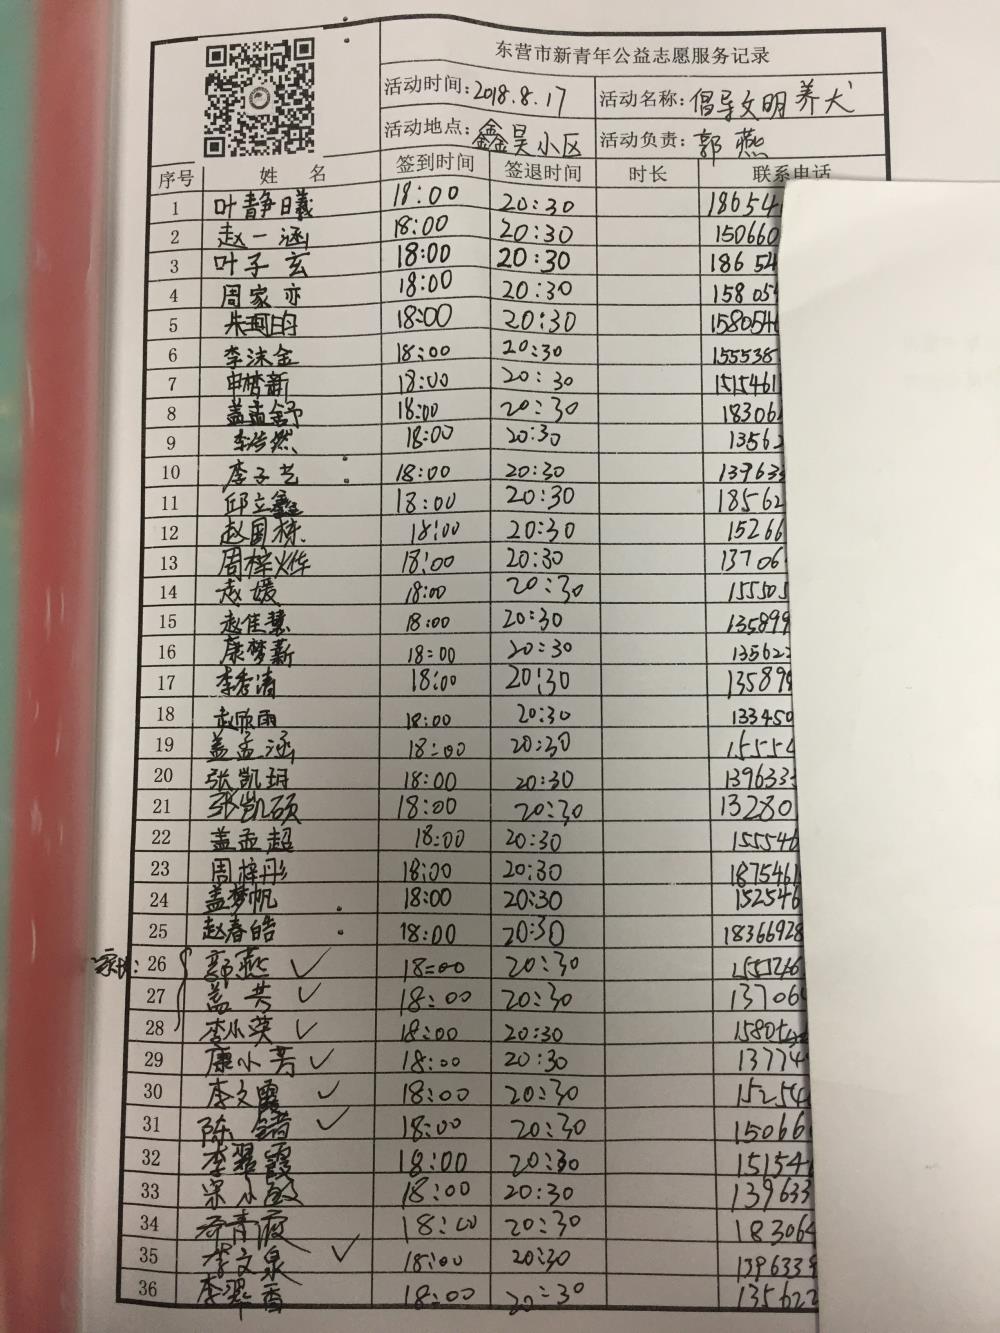 东营市新青年公益志愿服务记录
活动时间: 2018.8.17 活动名称: 倡导文明养犬
活动地点: 鑫昊小区 活动负责: 郭燕
序号 姓 名 签到时间 签退时间 时长 联系电话
1 叶静曦 18:00 20:30 18654
2 赵一涵 18:00 20:30 150660
3 叶子玄 18:00 20:30 18654
4 周家亦 18:00 20:30 158054
5 朱珂昀 18:00 20:30 1580546
6 李沫金 18:00 20:30 155538
7 申梦新 18:00 20:30 1515461
8 盖孟舒 18:00 20:30 18306
9 李浩然 18:00 20:30 13562
10 李子艺 18:00 20:30 139633
11 邱立鑫 18:00 20:30 18562
12 赵国栋 18:00 20:30 15266
13 周梓烨 18:00 20:30 13706
14 赵媛 18:00 20:30 155505
15 赵佳慧 18:00 20:30 135899
16 康梦新 18:00 20:30 135622
17 李秀清 18:00 20:30 135899
18 赵欣雨 18:00 20:30 133450
19 盖孟涵 18:00 20:30 15554
20 张凯玥 18:00 20:30 139633
21 张凯硕 18:00 20:30 13280
22 盖孟超 18:00 20:30 155546
23 周梓彤 18:00 20:30 1875461
24 盖梦帆 18:00 20:30 152546
25 赵春皓 18:00 20:30 18366928
家长: 26 郭燕 ✓ 18:00 20:30
27 盖芳 ✓ 18:00 20:30 13706
28 李小英 ✓ 18:00 20:30 15805
29 康小芳 ✓ 18:00 20:30 13774
30 李文霞 ✓ 18:00 20:30 15254
31 陈 ✓ 18:00 20:30 15066
32 李翠霞 18:00 20:30 15154
33 梁小 18:00 20:30 139633
34 青霞 18:00 20:30 18306
35 李文泉 ✓ 18:00 20:30 1396339
36 李翠香 18:00 20:30 135622